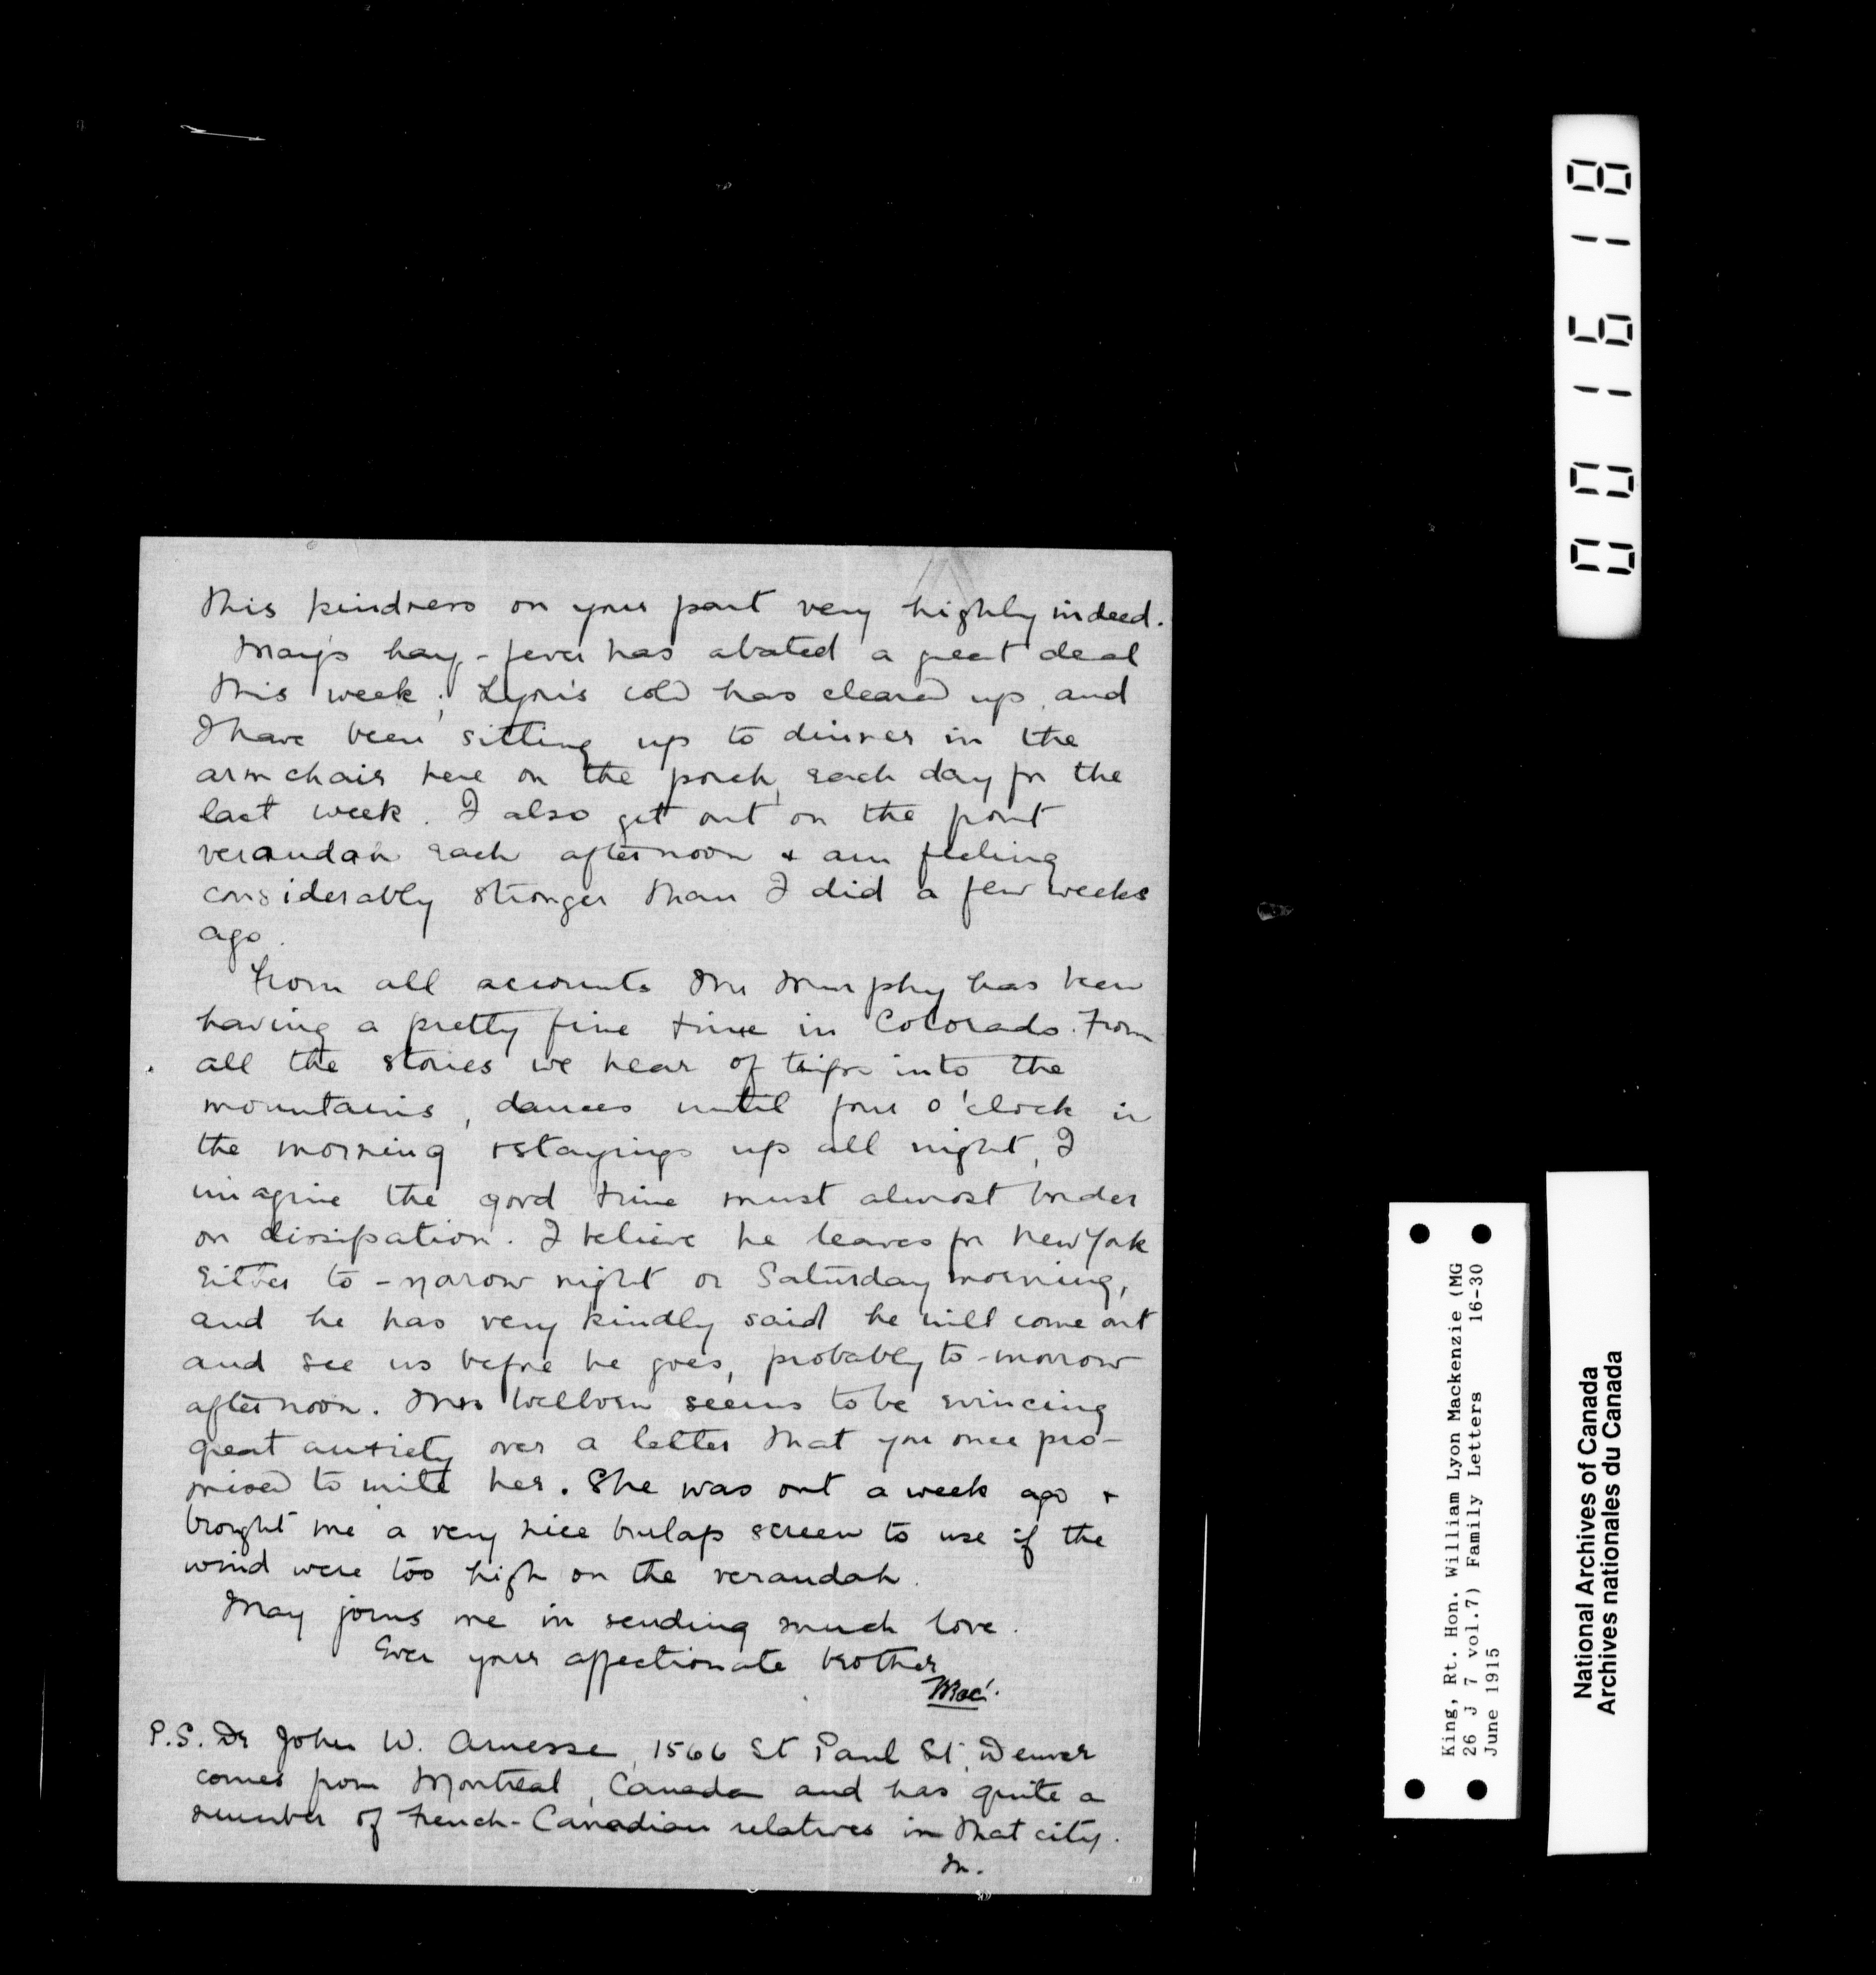 this kindness on your part very highly indeed.
May's hay-fever has abated a great deal
this week; Lyon's cold has cleared up, and
I have been sitting up to dinner in the
armchair here on the porch, each day for the
last week. I also get out on the front
verandah each afternoon & am feeling
considerably stronger than I did a few weeks
ago.
From all accounts Mr Murphy has been
having a pretty fine time in Colorado. From
all the stories we hear of trips into the
mountains, dances until four o'clock in
the morning & stayings up all night, I
imagine the good time must almost border
on dissipation. I believe he leaves for New York
either to-morow night or Saturday morning,
and he has very kindly said he will come out
and see us before he goes, probably to-morrow
afternoon. Mrs Welborn seems to be evincing
great anxiety over a letter that you once pro-
mised to write her. She was out a week ago &
brought me a very nice burlap screen to use if the
wind were too high on the verandah.
May joins me in sending much love.
Ever your affectionate brother
Mac.
P.S. Dr John W. Amesse, 1566 St Paul St, Denver
comes from Montreal, Canada and has quite a
number of French-Canadian relatives in that city.
M.
001618
King, Rt. Hon. William Lyon Mackenzie (MG
26 J 7 vol.7) Family Letters 16-30
June 1915
National Archives of Canada
Archives nationales du Canada